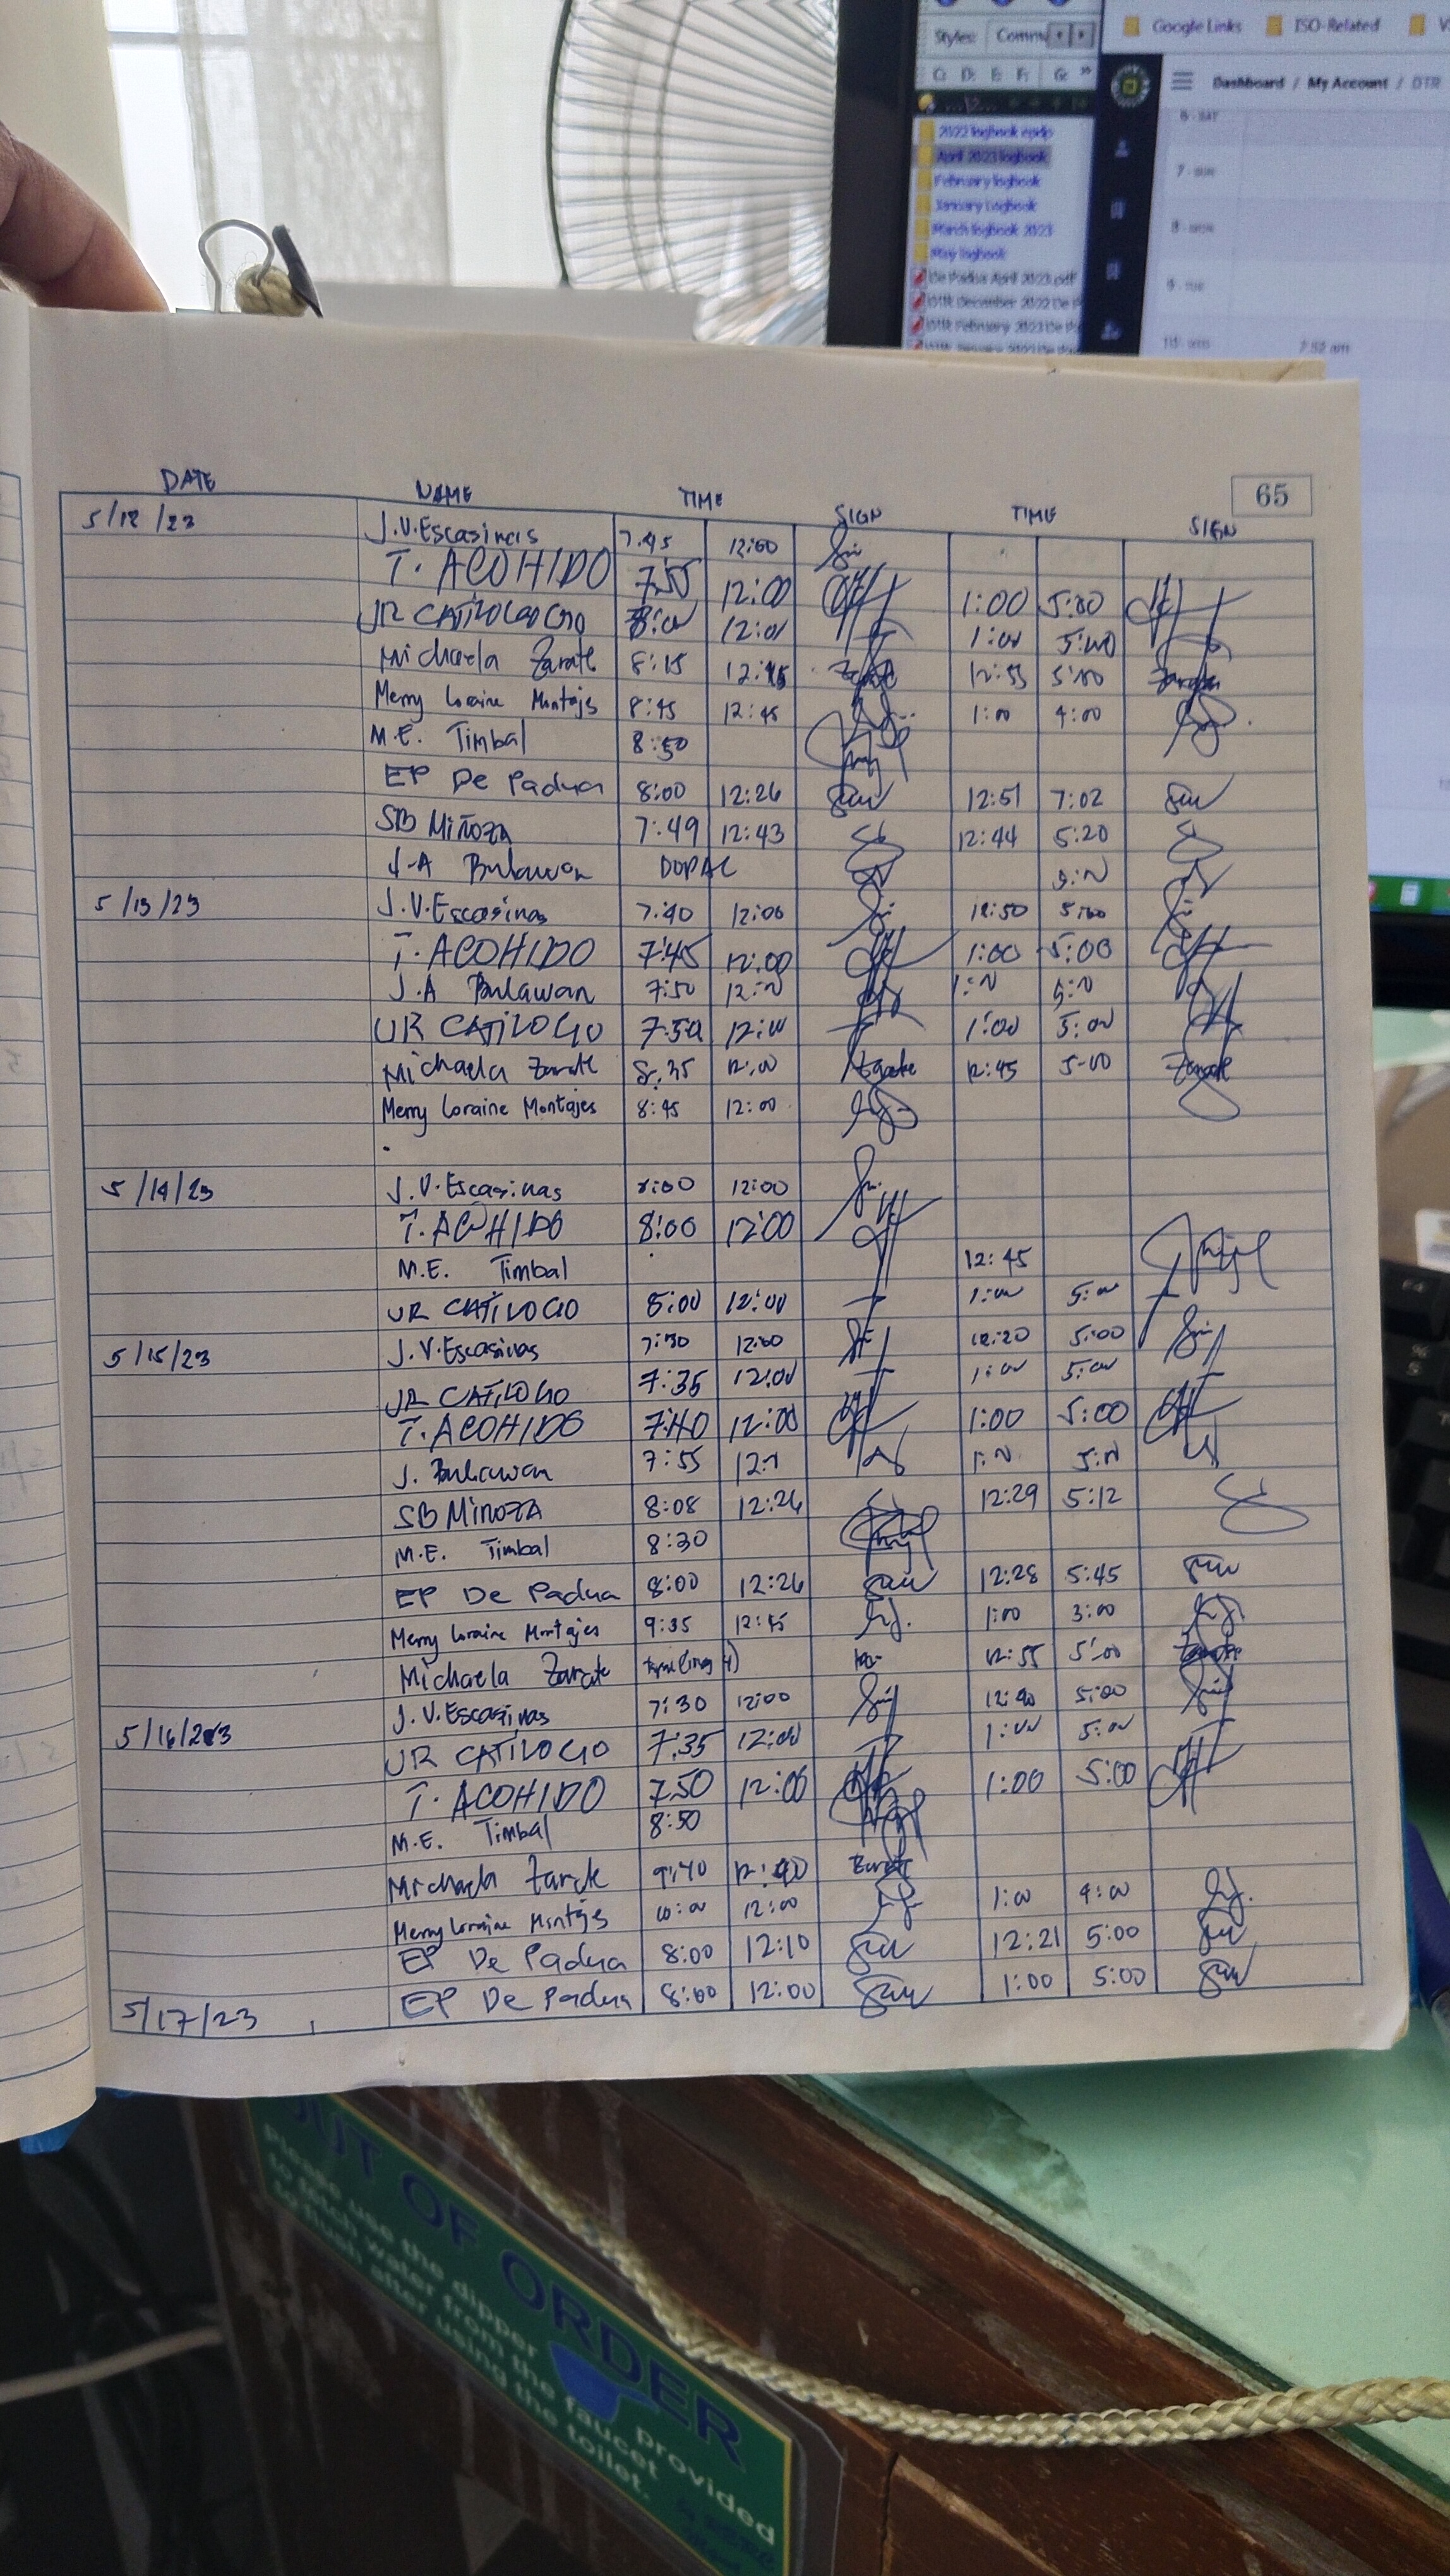 Styles: Comm
Google Links ISO-Related
C: D: E: F: G: »
Dashboard / My Account / DTR
2022 logbook epdp
April 2023 logbook
February logbook
January Logbook
March logbook 2023
May logbook
De Padua April 2023.pdf
DTR december 2022 De P
DTR February 2023 De Pa
DTR January 2023 De Pa
6 - SAT
7 - SUN
8 - MON
9 - TUE
10 - WED 7:52 am
65
DATE NAME TIME SIGN TIME SIGN
5/12/23 J.V. Escasinas 7:45 12:00
T. ACOHIDO 7:55 12:00 1:00 5:00
JR CATILOGO 8:00 12:00 1:00 5:00
Michaela Zarate 8:15 12:45 Zarate 12:55 5:00 Zarate
Merry Loraine Montajes 8:45 12:45 1:00 4:00
M.E. Timbal 8:50
EP De Padua 8:00 12:26 12:51 7:02
SB Miñoza 7:49 12:43 12:44 5:20
J-A Bulawan 5:00
5/13/23 J.V. Escasinas 7:40 12:00 12:50 5:00
T. ACOHIDO 7:45 12:00 1:00 5:00
J.A Bulawan 7:50 12:00 1:00 5:00
JR CATILOGO 7:50 12:00 1:00 5:00
Michaela Zarate 8:35 12:00 Zarate 12:45 5-00 Zarate
Merry Loraine Montajes 8:45 12:00
5/14/23 J.V. Escasinas 8:00 12:00
T. ACOHIDO 8:00 12:00
M.E. Timbal 12:45
JR CATILOGO 8:00 12:00 1:00 5:00
5/15/23 J.V. Escasinas 7:30 12:00 12:20 5:00
JR CATILOGO 7:35 12:00 1:00 5:00
T. ACOHIDO 7:40 12:00 1:00 5:00
J. Bulawan 7:55 1:00 5:00
SB MINOZA 8:08 12:26 12:29 5:12
M.E. Timbal 8:30
EP De Padua 8:00 12:26 12:28 5:45
Merry Loraine Montajes 9:35 12:45 1:00 3:00
Michaela Zarate 12:55 5:00 Zarate
J.V. Escasinas 7:30 12:00 12:40 5:00
5/16/23 JR CATILOGO 7:35 12:00 1:00 5:00
T. ACOHIDO 7:50 12:00 1:00 5:00
M.E. Timbal 8:50
Michaela Zarate 9:40 12:40 Zarate
Merry Loraine Montajes 10:00 12:00 1:00 4:00
EP De Padua 8:00 12:10 12:21 5:00
5/17/23 EP De Padua 8:00 12:00 1:00 5:00
OUT OF ORDER
Please use the dipper
to fetch water from the faucet provided
to flush after using the toilet.